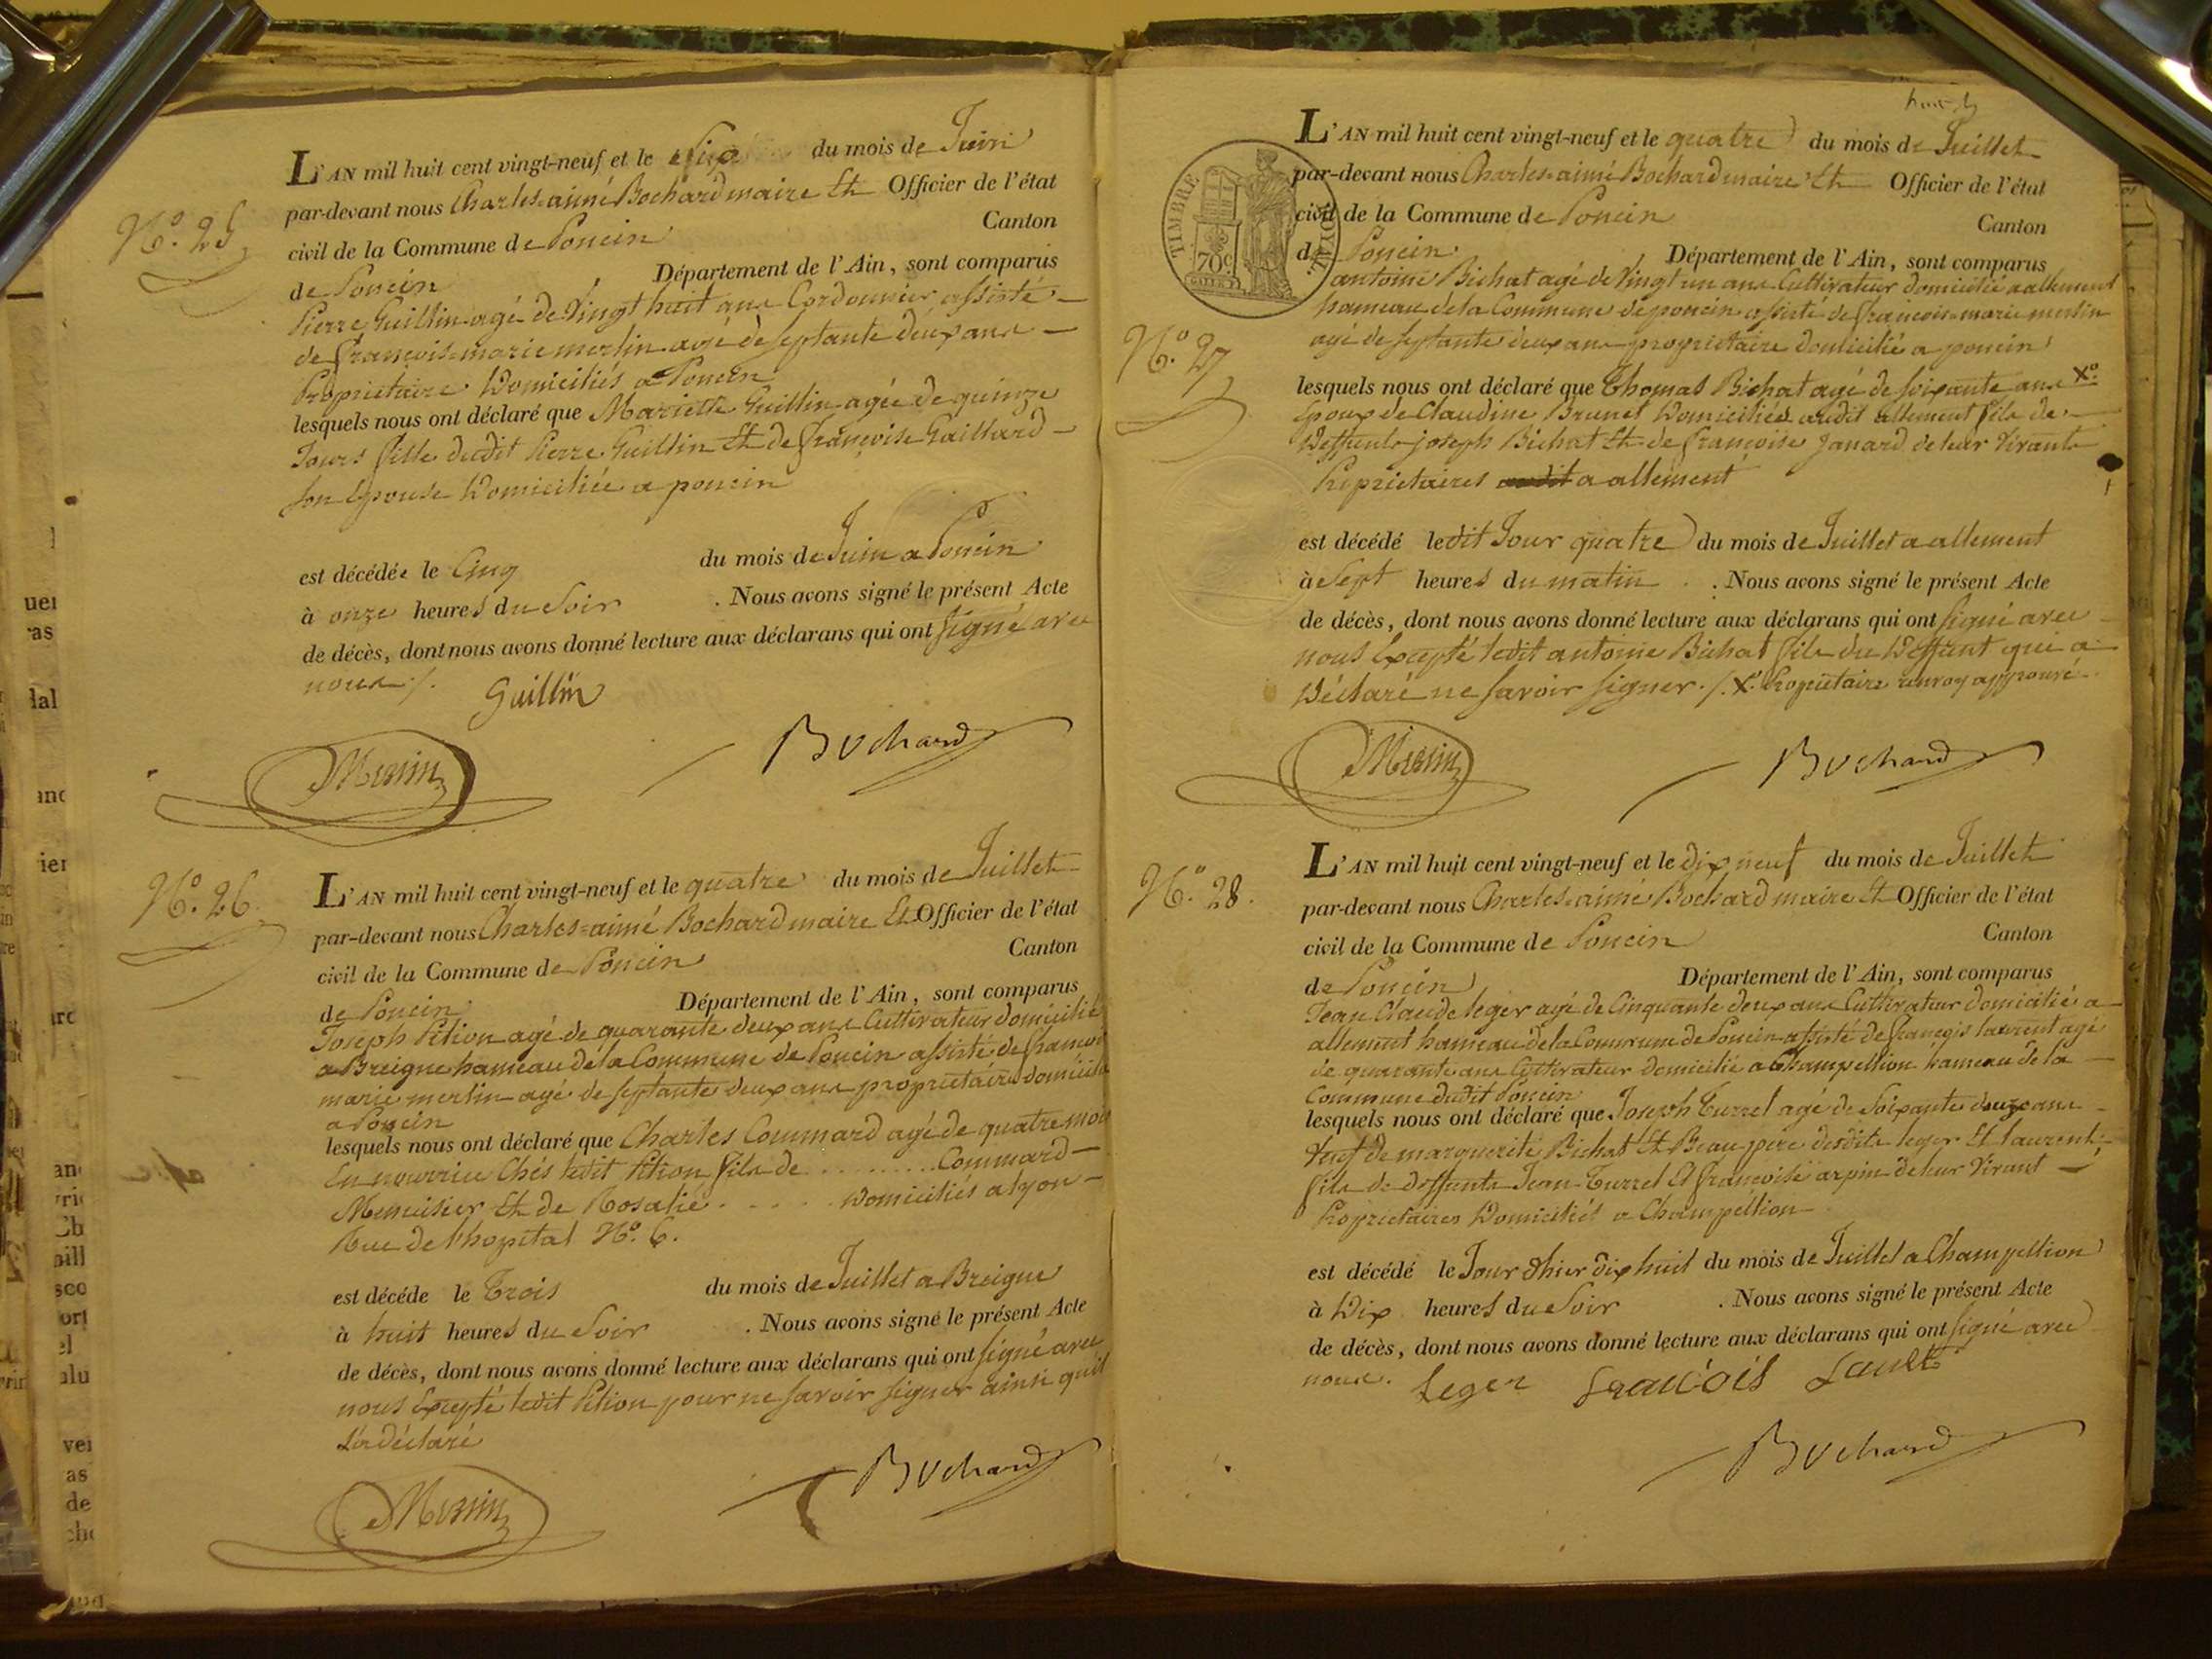 N.º 25
L'AN mil huit cent vingt-neuf et le six du mois de Juin
par-devant nous Charles-aimé Bochard maire Et Officier de l'état
civil de la Commune de Poncin Canton
de Poncin Département de l'Ain, sont comparus
Pierre Guillin agé de Vingt huit ans Cordonnier assisté
de françois-marie merlin agé de septante deux ans
Propriétaire Domiciliés a Poncin
lesquels nous ont déclaré que Mariette Guillin agée de quinze
Jours fille dudit Pierre Guillin Et de françoise Gaillard
son Epouse Domiciliée a poncin
est décédée le Cinq du mois de Juin a Poncin
à onze heures du Soir . Nous avons signé le présent Acte
de décès, dont nous avons donné lecture aux déclarans qui ont signé avec
nous ./.
Guillin
Merlin
Bochard
N.º 26.
L'AN mil huit cent vingt-neuf et le quatre du mois de Juillet
par-devant nous Charles=aimé Bochard maire Et Officier de l'état
civil de la Commune de Poncin Canton
de Poncin Département de l'Ain, sont comparus
Joseph Pition agé de quarante deux ans Cultivateur domicilié
a Breigne hameau de la Commune de Poncin assisté de francois
marie merlin agé de septante deux ans propriétaire domicilié
a Poncin
lesquels nous ont déclaré que Charles Commard agé de quatre mois
En nourrice Chés ledit Pition fils de ......... Commard
Menuisier Et de Rosalie . . . . . Domiciliés a lyon
Rue de l'hopital N.º 6.
est décéde le Trois du mois de Juillet a Breigne
à huit heures du Soir . Nous avons signé le présent Acte
de décès, dont nous avons donné lecture aux déclarans qui ont signé avec
nous Excepté ledit Pition pour ne savoir signer ainsi quil
L'a déclaré
Merlin
Bochard
L'AN mil huit cent vingt-neuf et le quatre du mois de Juillet
par-devant nous Charles-aimé Bochard maire Et Officier de l'état
civil de la Commune de Poncin Canton
de Poncin Département de l'Ain, sont comparus
TIMBRE ROYAL
70c
antoine Bichat agé de Vingt un ans Cultivateur domicilié a allement
hameau de la Commune de poncin assisté de francois-marie merlin
agé de septante deux ans propriétaire domicilié a poncin
N.º 27
lesquels nous ont déclaré que Thomas Bichat agé de soixante ans X.º
Epoux de Claudine Brunet Domiciliés audit allement fils de
Deffunts joseph Bichat Et de francoise Janard de leur Vivants
Propriétaires audit a allement
est décédé ledit Jour quatre du mois de Juillet a allement
à Sept heures du matin . Nous avons signé le présent Acte
de décès, dont nous avons donné lecture aux déclarans qui ont signé avec
nous Excepté ledit antoine Bichat fils du Deffunt qui a
Déclaré ne savoir signer ./. X.º Propriétaire renvoy approuvé
Merlin
Bochard
N.º 28.
L'AN mil huit cent vingt-neuf et le dix neuf du mois de Juillet
par-devant nous Charles-aimé Bochard maire Et Officier de l'état
civil de la Commune de Poncin Canton
de Poncin Département de l'Ain, sont comparus
Jean Claude leger agé de Cinquante deux ans Cultivateur domicilié a
allement hameau de la Commune de Poncin assisté de françois laurent agé
de quarante ans Cultivateur domicilié a Champellion hameau de la
Commune dudit Poncin
lesquels nous ont déclaré que Joseph Turrel agé de Soixante douze ans
Veuf de marguerite Bichat Et Beau pere desdits leger Et laurent
fils de deffunts Jean Turrel Et francoise arpin de leur Vivant
Propriétaires Domiciliés a Champellion
est décédé le Jour dhier dix huit du mois de Juillet a Champellion
à Dix heures du Soir . Nous avons signé le présent Acte
de décès, dont nous avons donné lecture aux déclarans qui ont signé avec
nous.
Leger
Bochard